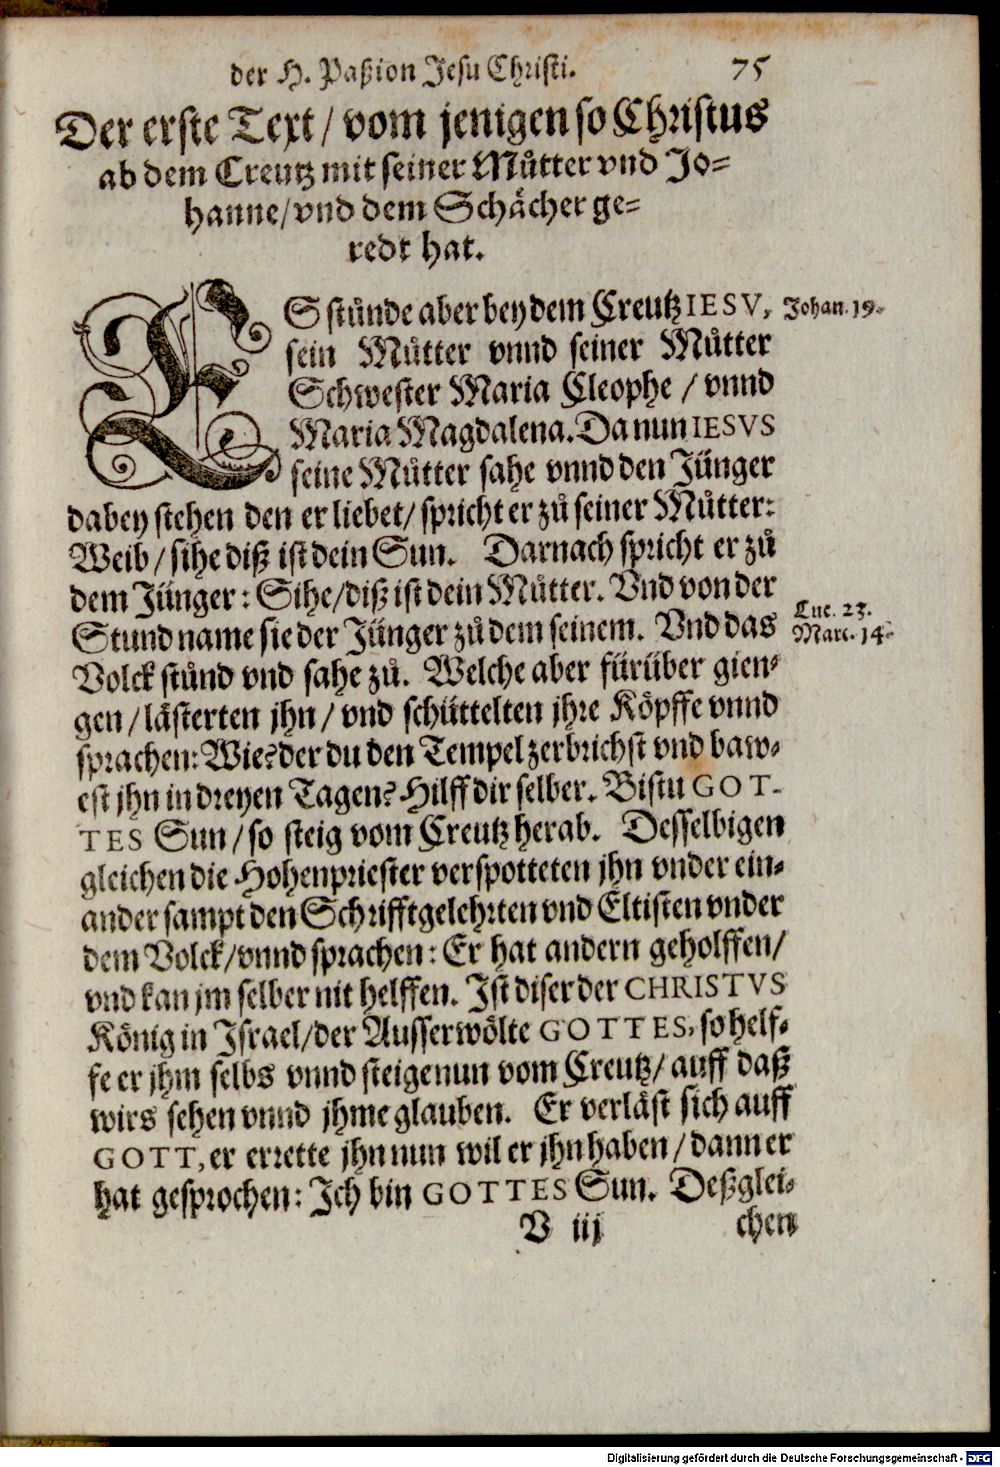 der H. Paßion Jesu Christi. 75
Der erste Text / vom jenigen so Christus
ab dem Creutz mit seiner Můtter vnd Jo=
hanne / vnd dem Schächer ge=
redt hat.
ES stůnde aber bey dem Creutz IESV, Johan. 19.
sein Můtter vnnd seiner Můtter
Schwester Maria Cleophe / vnnd
Maria Magdalena. Da nun IESVS
seine Můtter sahe vnnd den Jünger
dabey stehen den er liebet / spricht er zů seiner Můtter:
Weib / sihe diß ist dein Sun. Darnach spricht er zů
dem Jünger: Sihe / diß ist dein Můtter. Vnd von der
Stund name sie der Jünger zů dem seinem. Vnd das
Luc. 23.
Marc. 14.
Volck stůnd vnd sahe zů. Welche aber fürüber gien=
gen / lästerten jhn / vnd schüttelten jhre Köpffe vnnd
sprachen: Wie? der du den Tempel zerbrichst vnd baw=
est jhn in dreyen Tagen? Hilff dir selber. Bistu GOT-
TES Sun / so steig vom Creutz herab. Desselbigen
gleichen die Hohenpriester verspotteten jhn vnder ein=
ander sampt den Schrifftgelehrten vnd Eltisten vnder
dem Volck / vnnd sprachen: Er hat andern geholffen /
vnd kan jm selber nit helffen. Ist diser der CHRISTVS
König in Israel / der Ausserwölte GOTTES, so helf=
fe er jhm selbs vnnd steige nun vom Creutz / auff daß
wirs sehen vnnd jhme glauben. Er verläst sich auff
GOTT, er errette jhn nun wil er jhn haben / dann er
hat gesprochen: Ich bin GOTTES Sun. Deßglei=
V iij chen
Digitalisierung gefördert durch die Deutsche Forschungsgemeinschaft - DFG